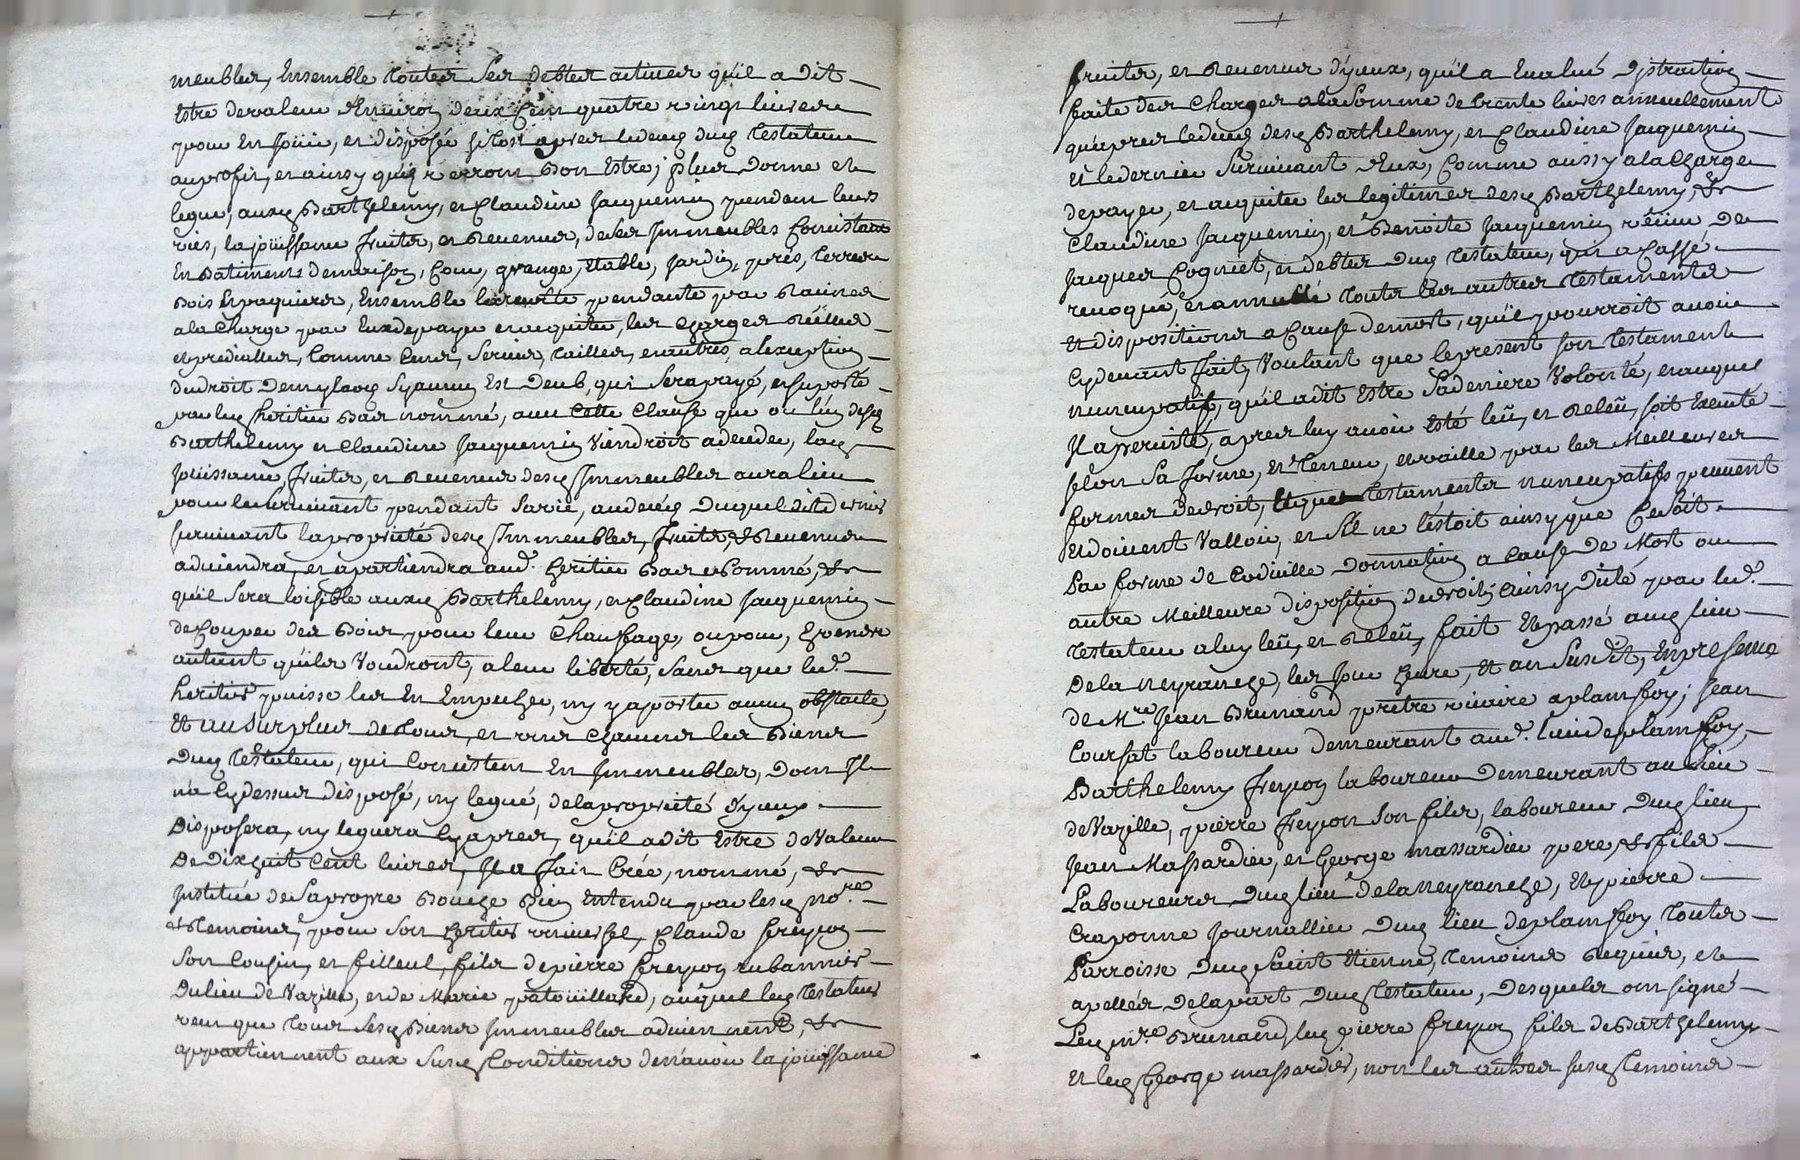 meubles, Ensemble toutes ses debtes actives qu'il a dit
Estre de valeur d'Environ deux Cent quatre vingt livres
pour En joüir, et disposé sitost apres le deceds dud testateur
au profit, et ainsy quils verront bon Estre; plus donne et
legue, auxd Barthelemy, et Claudine Jacquemin pendent leurs
vies, la joüissance fruits, et Revenus, de ses Immeubles Consistant
En Batiments de maison, Cour, grange, Etable, Jardin, prés, terres
Bois Epaquiers, Ensemble la recolte pendante par Racines
a la Charge par Eux de payer et acquiter, les Charges Réelles
et predialles, Comme Cens, Servis, tailles, et autres, a l'exeption
du droit de my laod sy aucun Est deub, qui sera payé, et suporté
par led heritier Bas nommé, avec Cette Clause que ou l'un desd
Barthelemy et Claudine Jacquemin Viendroit a deceder, lad
joüissance, fruits, et Revenus desd Immeubles aura lieu
pour le survivant pendant sa vie, au deceds duquel dit dernier
survivant la proprieté desd Immeubles, fruits, et Revenus
adviendra, et apartiendra aud. heritier Bas nommé, et
qu'il sera loisible auxd Barthelemy, et Claudine Jacquemin
de Couper des Bois pour leur Chauffage, ou pour, Vendre
autant qu'ils Voudront, a leur liberté, sans que led.
heritier puisse les En Empecher, ny y aporter aucun obstacle,
Et au surplus de tous, et uns Chacuns les Biens
dud testateur, qui Consistent En Immeubles, dont Il
n'a Cy dessus disposé, ny legué, de la proprieté d'yceux
disposera, ny leguera Cy apres, qu'il a dit Estre de Valeur
De dix huit Cent livres, Il a fait Créé, nommé, et
Institué de sa propre Bouche Bien Entendu par lesd no.re
et temoins, pour son heritier universel, Claude freycon
son Cousin, et filleul, fils de pierre freycon rubannier
du lieu de Vazille, et de Marie patoüillard, auquel led testateur
veut que tous sesd Biens Immeubles adviennent, et
appartiennent aux susd Conditions de n'avoir la joüissance
fruits, et Revenus d'yceux, qu'il a Evalué distraction
faite des Charges a la somme de trente livres annuellement
qu'apres le deceds desd Barthelemy, et Claudine Jacquemin
et le dernier survivant d'Eux, Comme aussy a la Charge
de payer, et acquiter les legitimes desd Barthelemy, et
Claudine Jacquemin, et Benoite Jacquemin veüve de
Jacques Cogniet, et debtes dud testateur, qui a Cassé
revoqué, et annullé touts les autres testaments
et dispositions a Cause de mort, qu'il pourroit avoir
Cy devant fait, Voulant que le present son testament
nuncupatif, qu'il a dit Estre sa derniere Volonté, et auquel
Il a persisté, apres luy avoir Esté leu, et Releu, soit Executé
selon sa forme, et teneur, et vaille par les Meilleures
formes de droit, testaments nuncupatifs peuvent
et doivent Valloir, et s'il ne l'estoit ainsy que Ce soit
Par forme de Codicille donnation a Cause de Mort ou
autre Meilleure disposition de droit; ainsy dicté par led.
testateur a luy leu, et Releu, fait Et passé aud lieu
De la neyranche, les jour heure, et an susdit, En presence
de M.re Jean Brunand prêtre vicaire a planfoy; Jean
Coursat laboureur demeurant aud. lieu de planfoy,
Barthelemy freycon laboureur demeurant au lieu
de Vazille, pierre freycon son fils, laboureur dud lieu
Jean Massardier, et George massardier pere, et fils
Laboureurs dud lieu de la Neyranche, Et pierre
Craponne journallier dud lieu de planfoy touts
Parroisse dud Saint Etienne, temoins requis, et
apellés de la part dud testateur, desquels ont signé
Led m.re Brunand, led pierre freycon fils de Barthelemy
et led George massardier, non les autres susd temoins